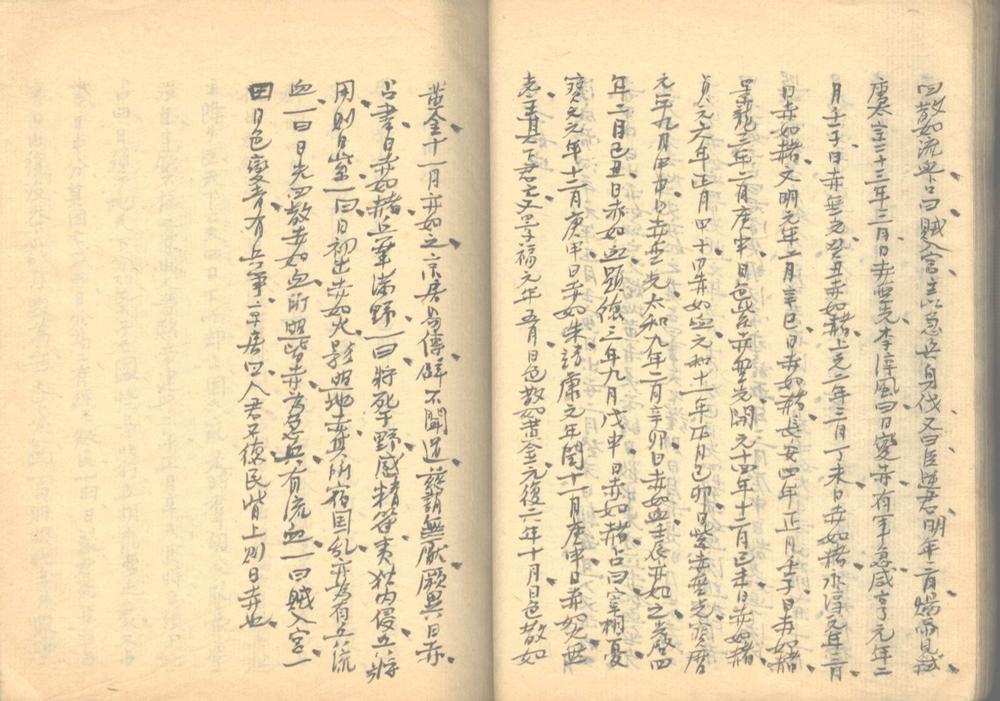 四散如流血占曰賊入宮主以急兵身伐又曰臣逆君明年二月煬帝見弒
唐太宗二十三年三月日赤無光李淳風曰日變赤有軍急咸亨元年二
月壬子日赤無光癸丑日赤如赭上元二年三月丁未日赤如赭永淳元年二月
日赤如赭文明元年二月辛巳日赤如赭長安四年正月壬子日赤如赭
景龍三年二月庚申日色紫赤無光開元十四年十二月己未日赤如赭
貞元六年正月甲子日赤如血元和十一年正月己卯日紫赤無光寶曆
元年九月甲申日赤無光太和九年二月辛卯日赤如血壬辰亦如之
年二月己丑日赤如血顯德三年九月戊申日赤如赭占曰宰相憂
寶元元年十二月庚申日赤如朱靖康元年閏十一月庚申日赤如火無
志王其下君文至福元年五月日色散如黃金元復六年十月日色散如
黃金十一月亦如之京房易傳辟不聞道茲謂無厭厥異日赤
占書日赤如赭兵軍滿野一曰將死于野感精符夷狄內侵立將
用則日紫一曰日初出赤如火影照地赤其所宿國亂亦為有兵流
血一曰日光四散赤如血所照皆赤為急兵有流血一曰賊入宮一
曰日色變青有兵軍京房曰人君不德民背上則日赤也